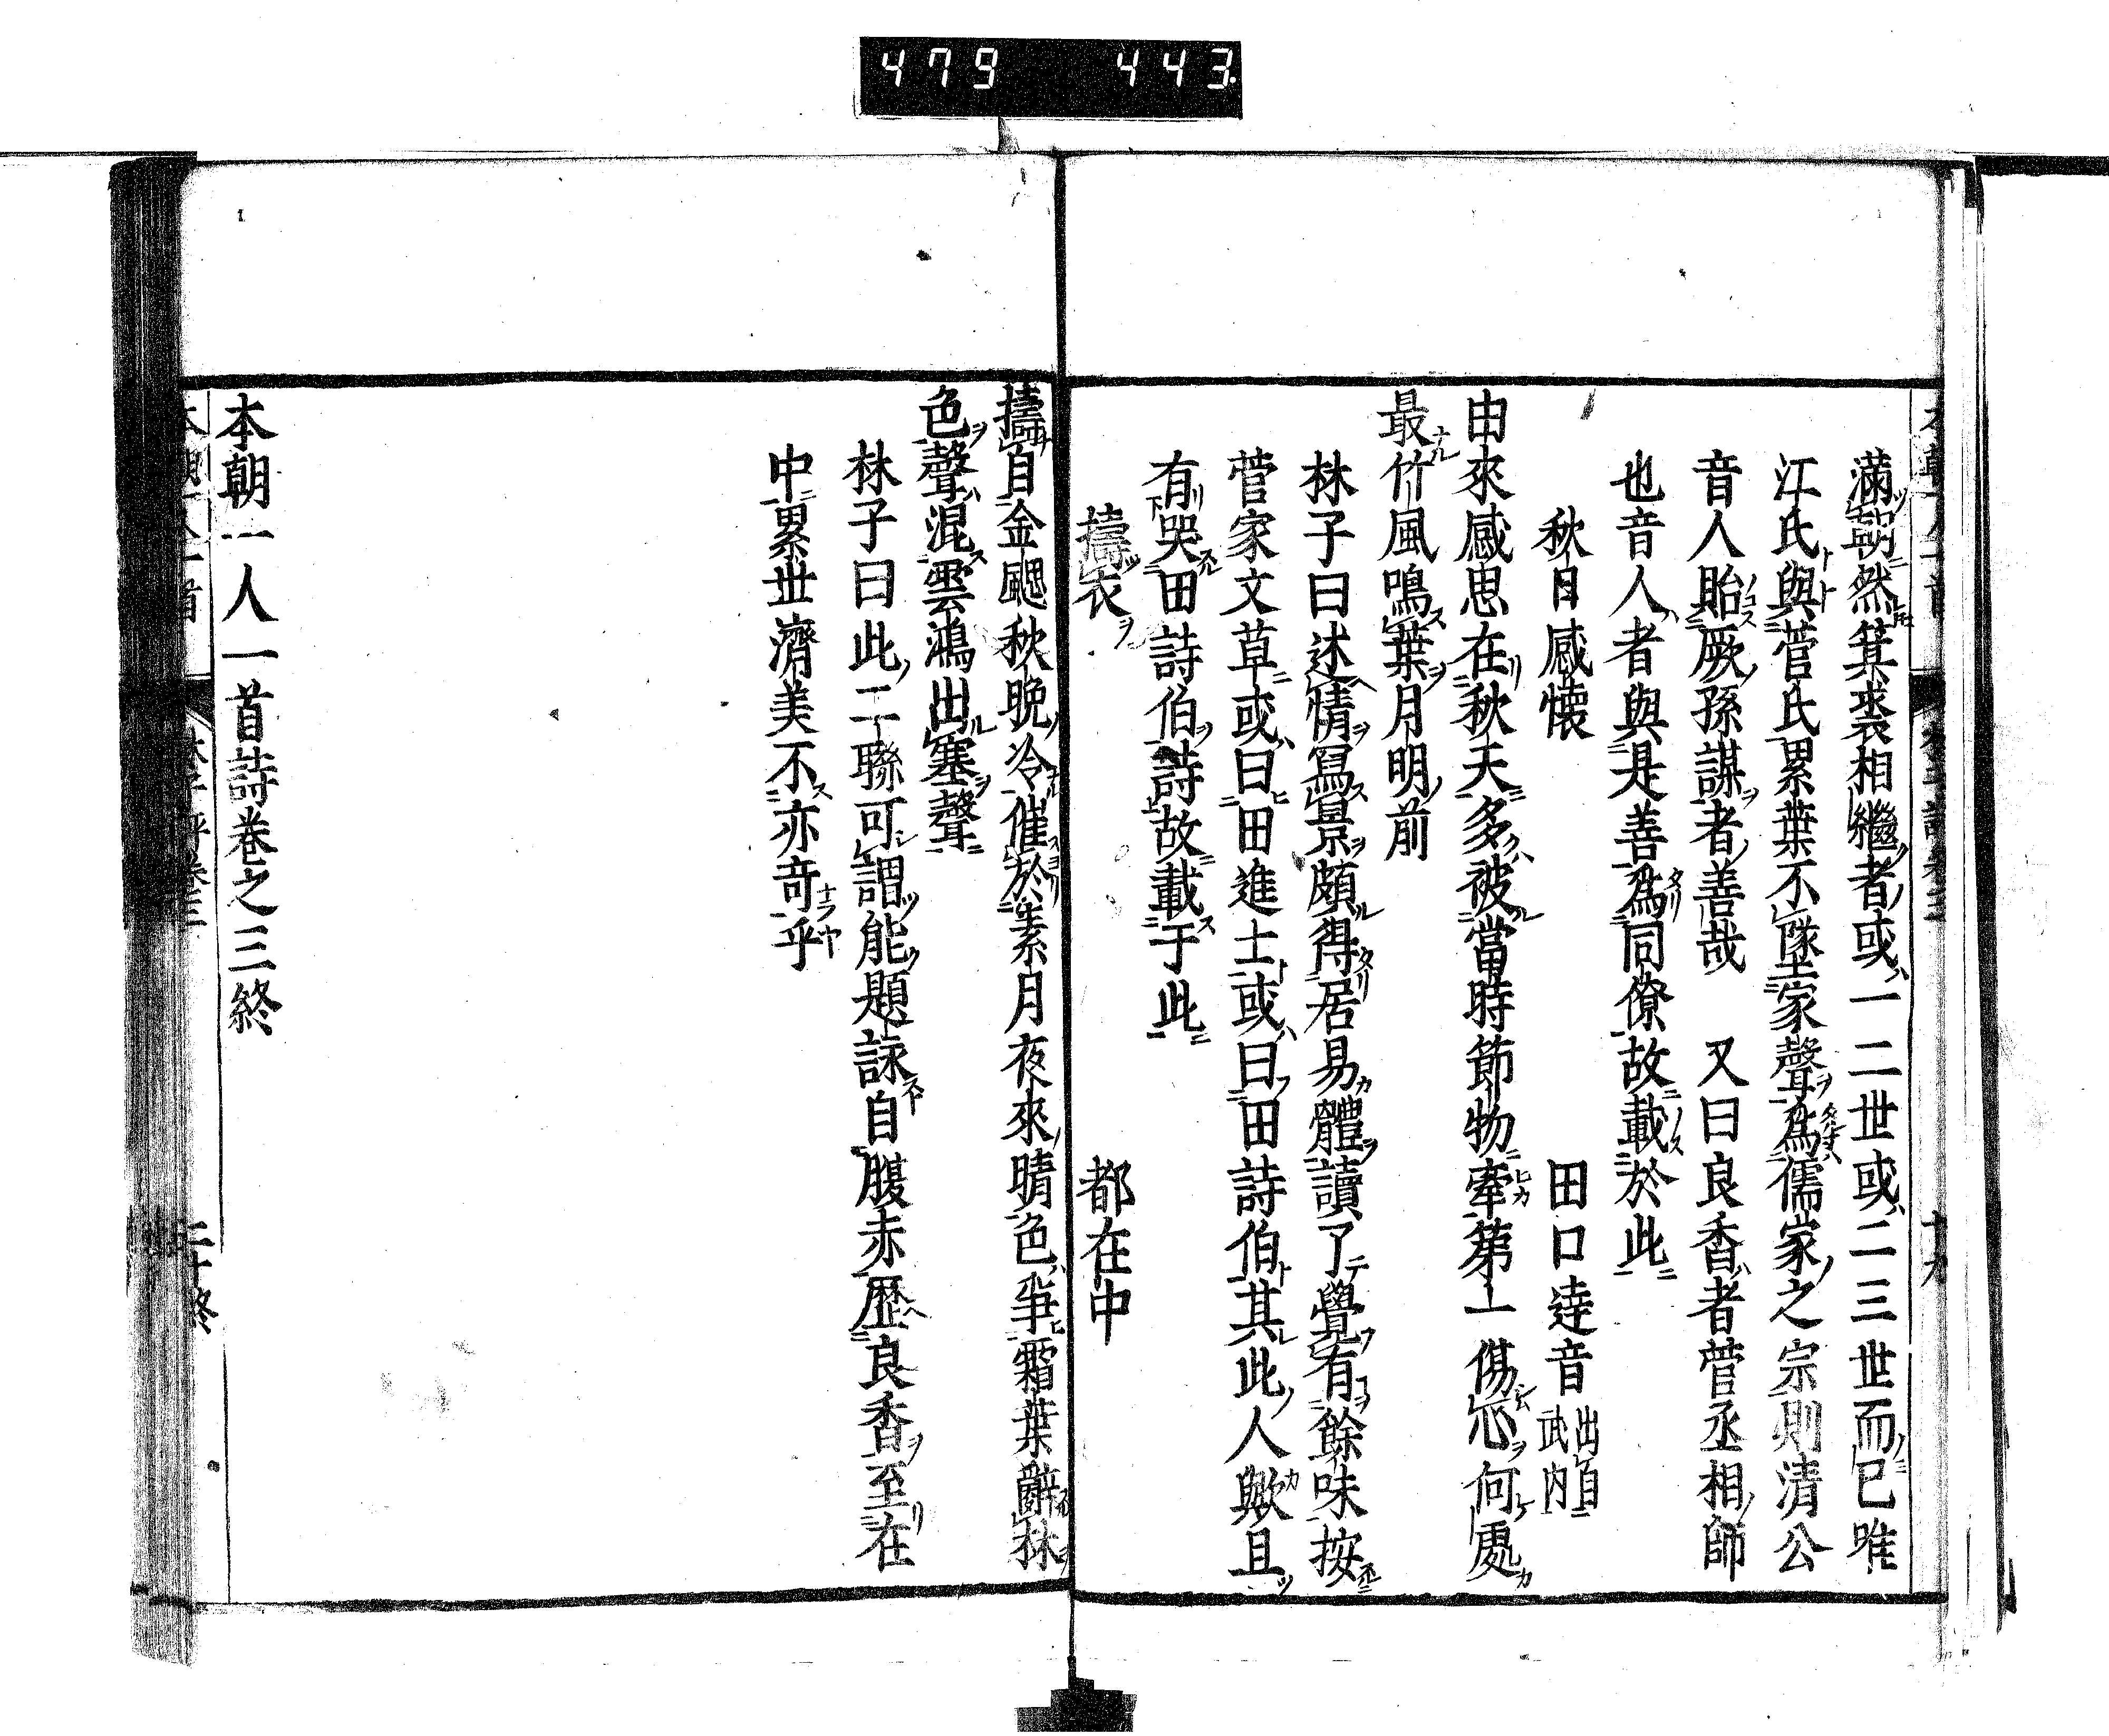 479 443
滿朝然箕裘相繼者或一二世或二三世而已唯
江氏與菅氏累葉不墜家聲爲儒家之宗則清公
音人貽厥孫謀者善哉 又曰良香者菅丞相師
也音人者與是善爲同僚故載於此
秋日感懷 田口達音 出自武内
由來感思在秋天多被當時節物牽第一傷心何處
最竹風鳴葉月明前
林子曰述情寫景頗得居易體讀了覺有餘味按
菅家文草或曰田進士或曰田詩伯其此人歟且
有哭田詩伯詩故載于此
擣衣 都在中
擣自金颸秋晩冷催於素月夜來晴色爭霜葉辭林
色聲混雲鴻出塞聲
林子曰此二聯可謂能題詠自腹赤歷良香至在
中累世濟美不亦奇乎
本朝一人一首詩卷之三終